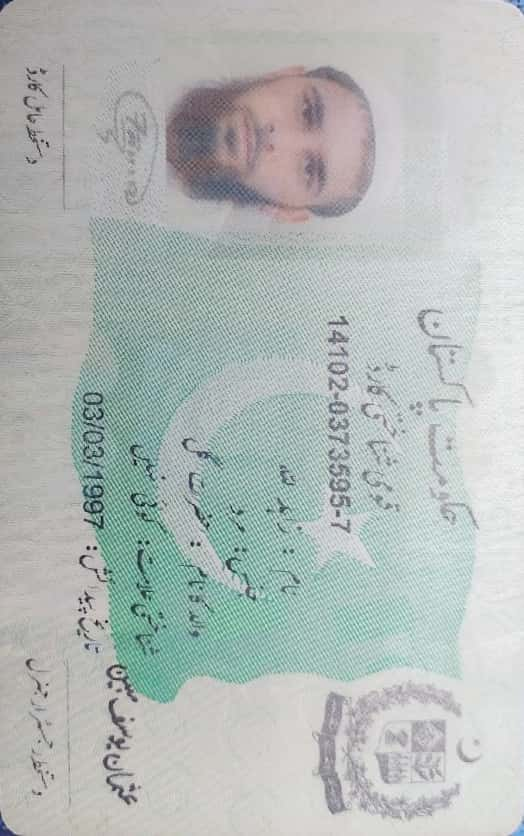 حکومتِ پاکستان
قومی شناختی کارڈ
14102-0373595-7
نام: زاہد اللہ
جنس: مرد
والد کا نام: حضرت گل
شناختی علامت: کوئی نہیں
تاریخ پیدائش: 03/03/1997
دستخط حامل کارڈ
عثمان یوسف مبین
دستخط رجسٹرار جنرل